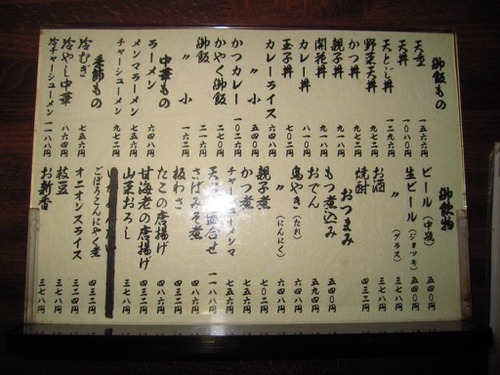 御飯もの
天重 一五六六円
天丼 一〇八〇円
天とじ丼
野菜天丼 九七二円
かつ丼 九七二円
親子丼
開花丼 九一八円
カレー丼 九一八円
玉子丼 七〇二円
カレーライス 八一〇円
〃 小 五四〇円
かつカレー 一〇二六円
かやく御飯 二七〇円
御飯 二一六円
〃 小 一六二円
中華もの
ラーメン 六四八円
メンマラーメン 七五六円
チャーシューメン 九七二円
季節もの
冷むぎ 七五六円
冷やし中華 八六四円
冷チャーシューメン 一一八八円
御飲物
ビール（中瓶） 五四〇円
生ビール（ジョッキ） 五四〇円
〃（グラス） 三七八円
お酒 三七八円
焼酎 四三二円
おつまみ
もつ煮込み 五四〇円
おでん 五九四円
鳥やき（たれ） 六四八円
〃（にんにく） 六四八円
親子煮 七〇二円
かつ煮 七五六円
チャーシューメンマ 七五六円
天ぷら盛合せ 一一八八円
さばみそ煮
板わさ
たこの唐揚げ 四八六円
甘海老の唐揚げ 四八六円
山菜おろし 四三二円
ごぼうこんにゃく煮 四三二円
オニオンスライス 三二四円
枝豆 三七八円
お新香 三七八円